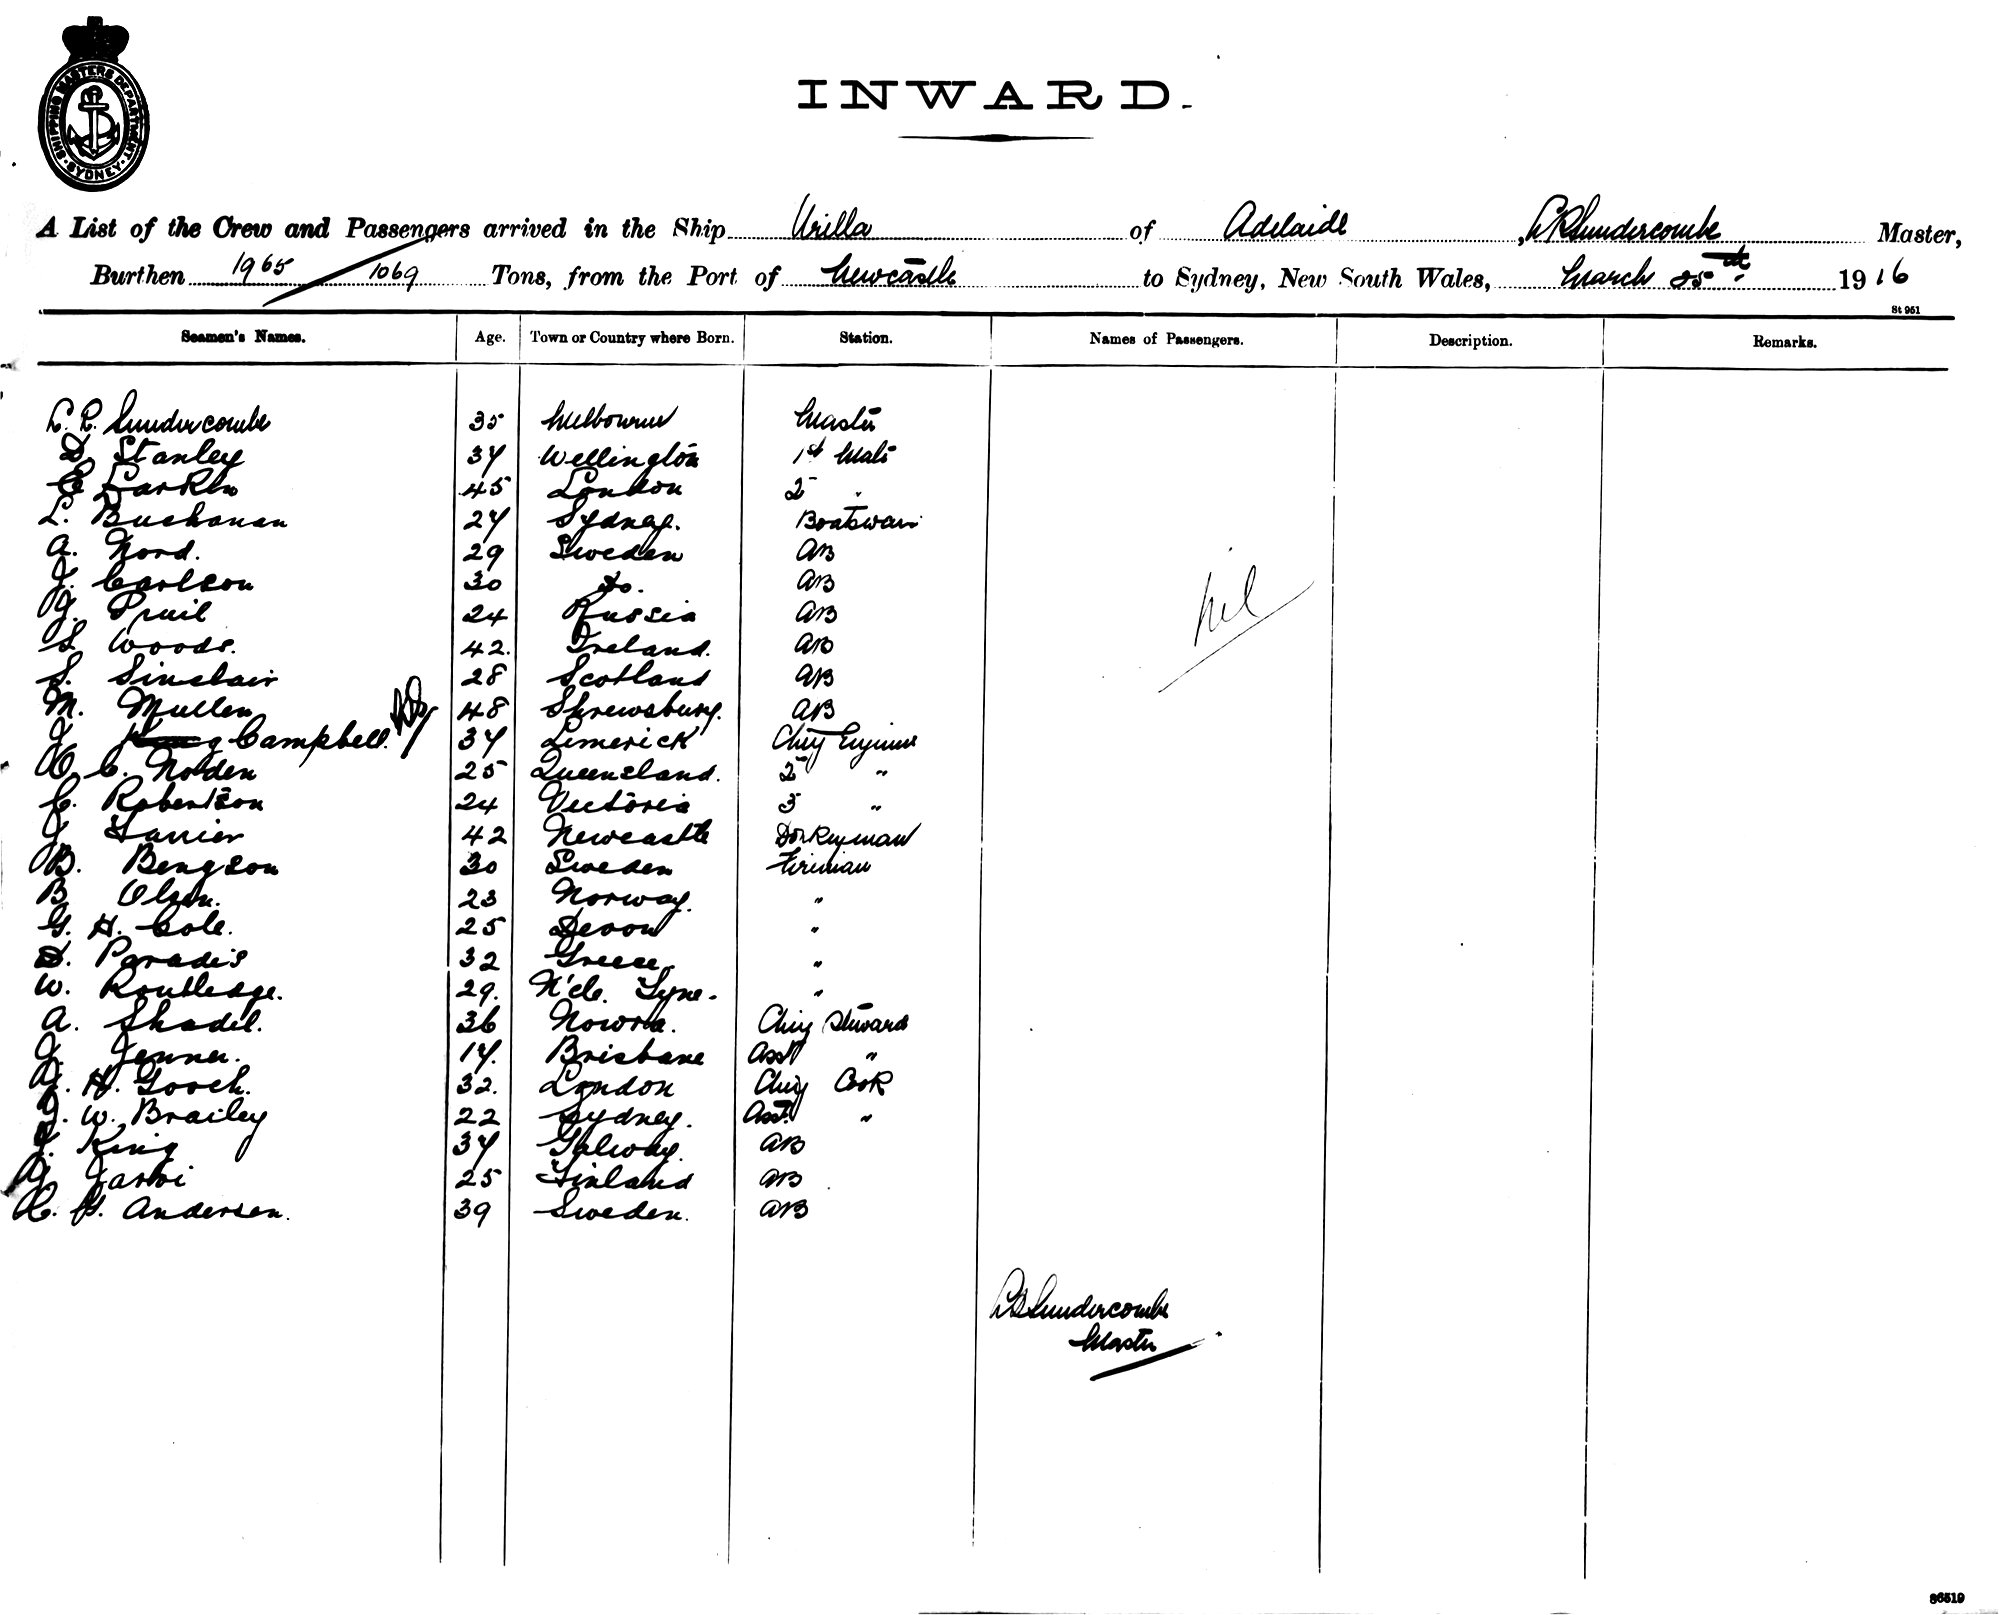 SHIPPING MASTERS DEPARTMENT. SYDNEY
INWARD.
A List of the Crew and Passengers arrived in the Ship Urilla of Adelaide, Master,
Burthen 1965 / 1069 Tons, from the Port of Newcastle to Sydney, New South Wales, March 25th 1916
St 951
Seamen's Names. Age. Town or Country where Born. Station. Names of Passengers. Description. Remarks.
35 Melbourne Master
D. Stanley 37 Wellington 1st Mate
Larkin 45 London 2 "
L. Buchanan 27 Sydney. Boatswain
A. Nord. 29 Sweden AB
J. Carlson 30 Do. AB
Pruil 24 Russia AB
S Woods. 42. Ireland. AB
S. Sinclair 28 Scotland AB
M. Mullen 48 Shrewsbury. AB
J Campbell. 37 Limerick Chief Engineer
C. Noden 25 Queensland. 2 "
C. Robertson 24 Victoria 3 "
J 42 Newcastle Donkeyman
B. Bengson 30 Sweden Fireman
B Olsen. 23 Norway. "
G. H. Cole. 25 Devon "
D. Paradis 32 Greece. "
W. Routledge. 29. N'cle. Tyne. "
A. Shadel. 36 Nowra. Chief Steward
J. Jenner. 17. Brisbane Asst "
H. Gooch. 32. London Chief Cook
J. W. Brailey 22 Sydney. Asst. "
J. King 37 Galway. AB
Jarvi 25 Finland AB
Andersen. 39 Sweden. AB
Nil
Master
86519